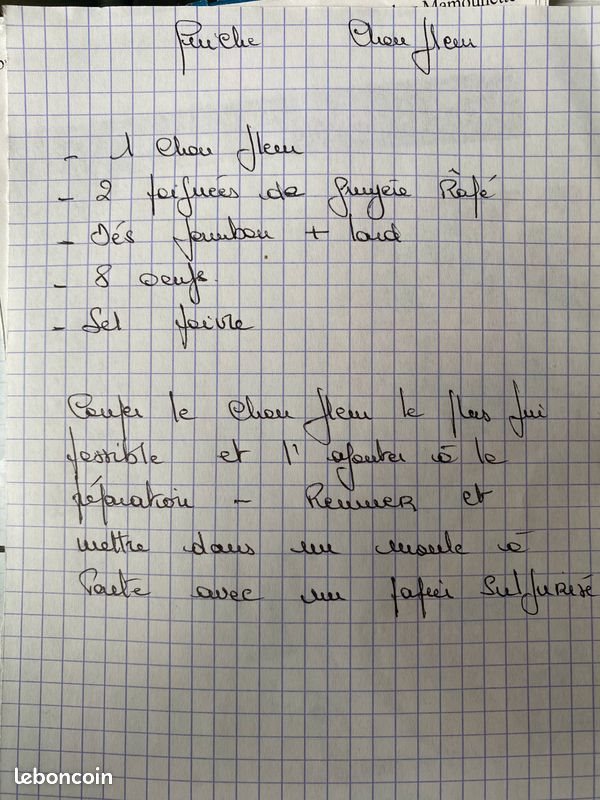 Mamounette
Quiche Chou fleur
- 1 Chou fleur
- 2 poignées de gruyère Râpé
- Dés jambon + lard
- 8 oeufs.
- Sel poivre
Couper le chou fleur le plus fin
possible et l'ajouter à la
préparation - Remuer et
mettre dans un moule à
Tarte avec un papier Sulfurisé
leboncoin